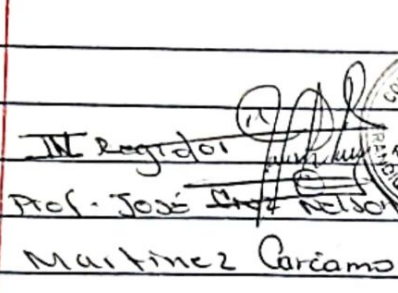 IV Regidor
Prof. José Cruz Nelson
Martinez Carcamo